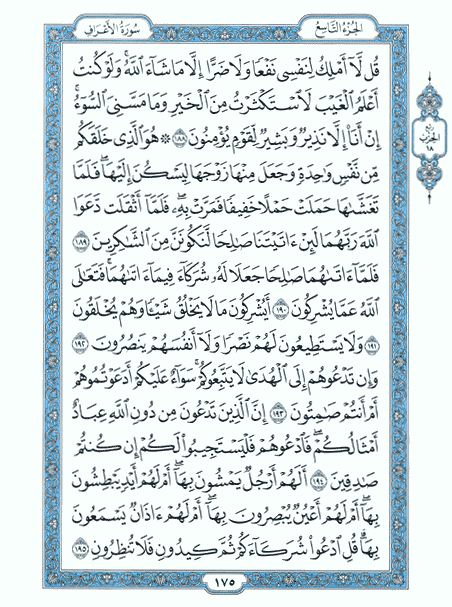 سُورَةُ الأَعْرَافِ
الجُزْءُ التَّاسِعُ
قُل لَّآ أَمْلِكُ لِنَفْسِى نَفْعًا وَلَا ضَرًّا إِلَّا مَا شَآءَ ٱللَّهُ ۚ وَلَوْ كُنتُ
أَعْلَمُ ٱلْغَيْبَ لَٱسْتَكْثَرْتُ مِنَ ٱلْخَيْرِ وَمَا مَسَّنِىَ ٱلسُّوٓءُ ۚ
إِنْ أَنَا۠ إِلَّا نَذِيرٌ وَبَشِيرٌ لِّقَوْمٍ يُؤْمِنُونَ ١٨٨ ۞ هُوَ ٱلَّذِى خَلَقَكُم
مِّن نَّفْسٍ وَٰحِدَةٍ وَجَعَلَ مِنْهَا زَوْجَهَا لِيَسْكُنَ إِلَيْهَا ۖ فَلَمَّا
تَغَشَّىٰهَا حَمَلَتْ حَمْلًا خَفِيفًا فَمَرَّتْ بِهِۦ ۖ فَلَمَّآ أَثْقَلَت دَّعَوَا
ٱللَّهَ رَبَّهُمَا لَئِنْ ءَاتَيْتَنَا صَٰلِحًا لَّنَكُونَنَّ مِنَ ٱلشَّٰكِرِينَ ١٨٩
فَلَمَّآ ءَاتَىٰهُمَا صَٰلِحًا جَعَلَا لَهُۥ شُرَكَآءَ فِيمَآ ءَاتَىٰهُمَا ۚ فَتَعَٰلَى
ٱللَّهُ عَمَّا يُشْرِكُونَ ١٩٠ أَيُشْرِكُونَ مَا لَا يَخْلُقُ شَيْـًٔا وَهُمْ يُخْلَقُونَ
١٩١ وَلَا يَسْتَطِيعُونَ لَهُمْ نَصْرًا وَلَآ أَنفُسَهُمْ يَنصُرُونَ ١٩٢
وَإِن تَدْعُوهُمْ إِلَى ٱلْهُدَىٰ لَا يَتَّبِعُوكُمْ ۚ سَوَآءٌ عَلَيْكُمْ أَدَعَوْتُمُوهُمْ
أَمْ أَنتُمْ صَٰمِتُونَ ١٩٣ إِنَّ ٱلَّذِينَ تَدْعُونَ مِن دُونِ ٱللَّهِ عِبَادٌ
أَمْثَالُكُمْ ۖ فَٱدْعُوهُمْ فَلْيَسْتَجِيبُوا۟ لَكُمْ إِن كُنتُمْ
صَٰدِقِينَ ١٩٤ أَلَهُمْ أَرْجُلٌ يَمْشُونَ بِهَآ ۖ أَمْ لَهُمْ أَيْدٍ يَبْطِشُونَ
بِهَآ ۖ أَمْ لَهُمْ أَعْيُنٌ يُبْصِرُونَ بِهَآ ۖ أَمْ لَهُمْ ءَاذَانٌ يَسْمَعُونَ
بِهَا ۗ قُلِ ٱدْعُوا۟ شُرَكَآءَكُمْ ثُمَّ كِيدُونِ فَلَا تُنظِرُونِ ١٩٥
الحِزْب
١٨
١٧٥